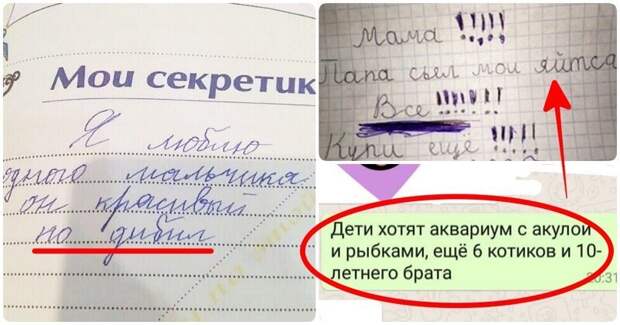 Мои секретик
Я люблю
одного мальчика
он красивый
но дибил
Мама !!!!!
Папа сьел мои яйтса
Все !!!!!!!
Купи ещё !!!!!
Дети хотят аквариум с акулой
и рыбками, ещё 6 котиков и 10-
летнего брата